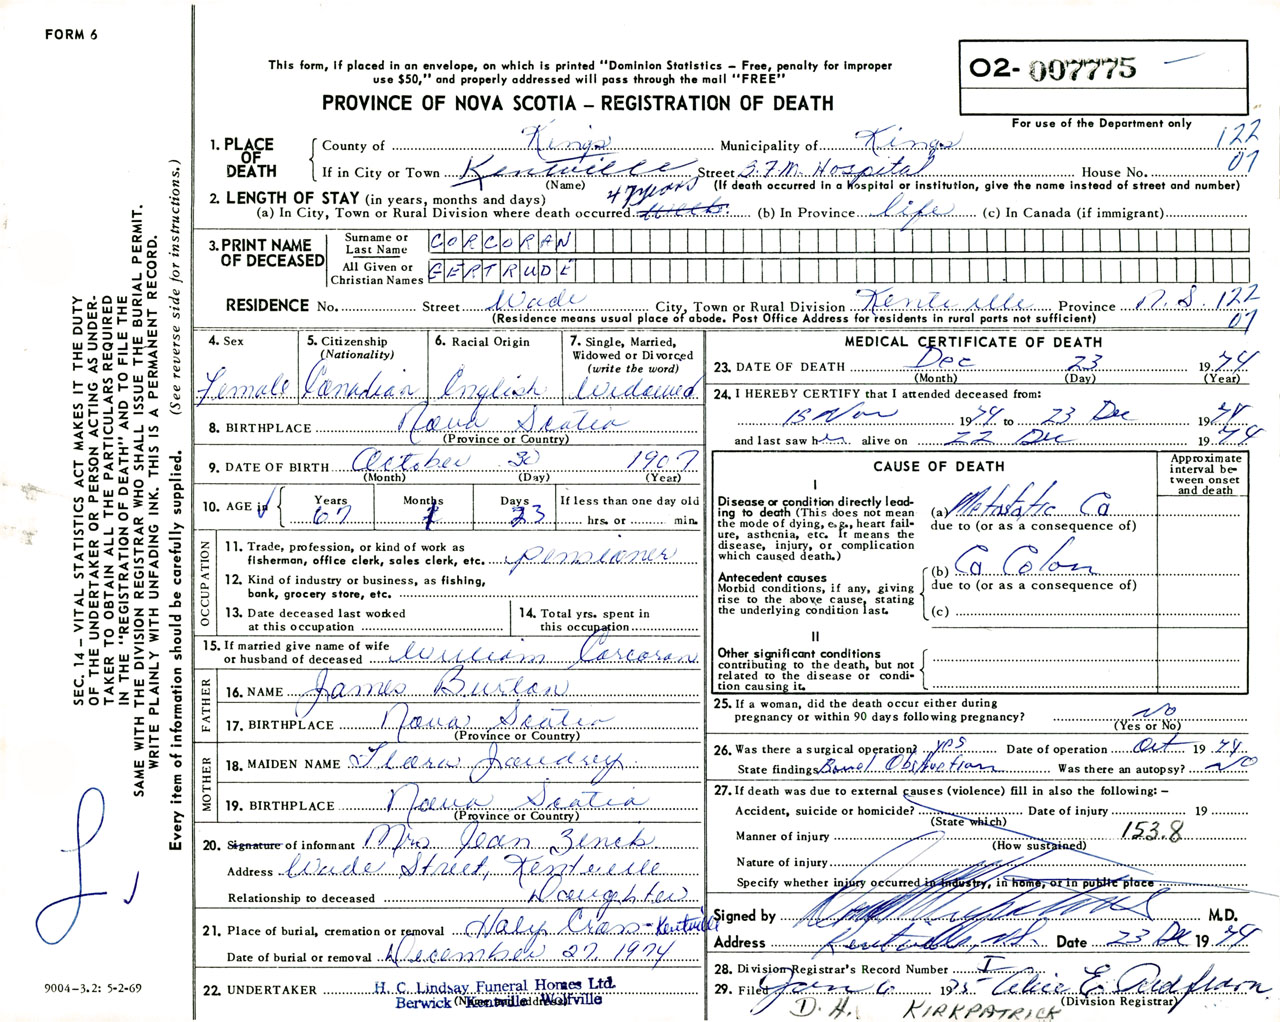 FORM 6
This form, if placed in an envelope, on which is printed "Dominion Statistics – Free, penalty for improper
use $50," and properly addressed will pass through the mail "FREE"
PROVINCE OF NOVA SCOTIA – REGISTRATION OF DEATH
02- 007775
For use of the Department only
122
07
1. PLACE OF DEATH
County of Kings Municipality of Kings
If in City or Town Kentville Street B.F.M. Hospital House No.
(Name) (If death occurred in a hospital or institution, give the name instead of street and number)
2. LENGTH OF STAY (in years, months and days) 47 years
(a) In City, Town or Rural Division where death occurred (b) In Province life (c) In Canada (if immigrant)
3. PRINT NAME OF DECEASED
Surname or Last Name CORCORAN
All Given or Christian Names GERTRUDE
RESIDENCE No. Street Wade City, Town or Rural Division Kentville Province N.S. 122
07
(Residence means usual place of abode. Post Office Address for residents in rural parts not sufficient)
4. Sex Female
5. Citizenship (Nationality) Canadian
6. Racial Origin English
7. Single, Married, Widowed or Divorced (write the word) Widowed
8. BIRTHPLACE Nova Scotia
(Province or Country)
9. DATE OF BIRTH October 30 1907
(Month) (Day) (Year)
10. AGE in Years 67 Months 1 Days 23 If less than one day old hrs. or min.
OCCUPATION
11. Trade, profession, or kind of work as
fisherman, office clerk, sales clerk, etc. pensioner
12. Kind of industry or business, as fishing,
bank, grocery store, etc.
13. Date deceased last worked
at this occupation
14. Total yrs. spent in
this occupation
15. If married give name of wife
or husband of deceased William Corcoran
FATHER
16. NAME James Burton
17. BIRTHPLACE Nova Scotia
(Province or Country)
MOTHER
18. MAIDEN NAME Flora Jaudrey
19. BIRTHPLACE Nova Scotia
(Province or Country)
20. Signature of informant Mrs Jean Zinck
Address Wade Street, Kentville
Relationship to deceased Daughter
21. Place of burial, cremation or removal Holy Cross - Kentville
Date of burial or removal December 27, 1974
22. UNDERTAKER H. C. Lindsay Funeral Homes Ltd.
(Name and address) Berwick Kentville Wolfville
MEDICAL CERTIFICATE OF DEATH
23. DATE OF DEATH Dec 23 1974
(Month) (Day) (Year)
24. I HEREBY CERTIFY that I attended deceased from:
15 Nov 1974 to 23 Dec 1974
and last saw her alive on 22 Dec 1974
CAUSE OF DEATH
Approximate interval between onset and death
I
Disease or condition directly leading to death (This does not mean the mode of dying, e.g., heart failure, asthenia, etc. It means the disease, injury, or complication which caused death.)
(a) Metastatic Ca
due to (or as a consequence of)
Antecedent causes
Morbid conditions, if any, giving rise to the above cause, stating the underlying condition last.
(b) Ca Colon
due to (or as a consequence of)
(c)
II
Other significant conditions
contributing to the death, but not related to the disease or condition causing it.
25. If a woman, did the death occur either during
pregnancy or within 90 days following pregnancy? No
(Yes or No)
26. Was there a surgical operation? yes Date of operation Oct 1974
State findings Bowel Obstruction Was there an autopsy? No
27. If death was due to external causes (violence) fill in also the following: –
Accident, suicide or homicide? Date of injury 19
(State which)
Manner of injury 153.8
(How sustained)
Nature of injury
Specify whether injury occurred in industry, in home, or in public place
Signed by M.D.
Address Kentville, N.S. Date 23 Dec 1974
28. Division Registrar's Record Number 1
29. Filed Jan 6 1975 Alice E.
(Division Registrar)
D. H. KIRKPATRICK
SEC. 14 – VITAL STATISTICS ACT MAKES IT THE DUTY
OF THE UNDERTAKER OR PERSON ACTING AS UNDER-
TAKER TO OBTAIN ALL THE PARTICULARS REQUIRED
IN THE "REGISTRATION OF DEATH" AND TO FILE THE
SAME WITH THE DIVISION REGISTRAR WHO SHALL ISSUE THE BURIAL PERMIT.
WRITE PLAINLY WITH UNFADING INK. THIS IS A PERMANENT RECORD.
Every item of information should be carefully supplied. (See reverse side for instructions.)
9004-3.2: 5-2-69